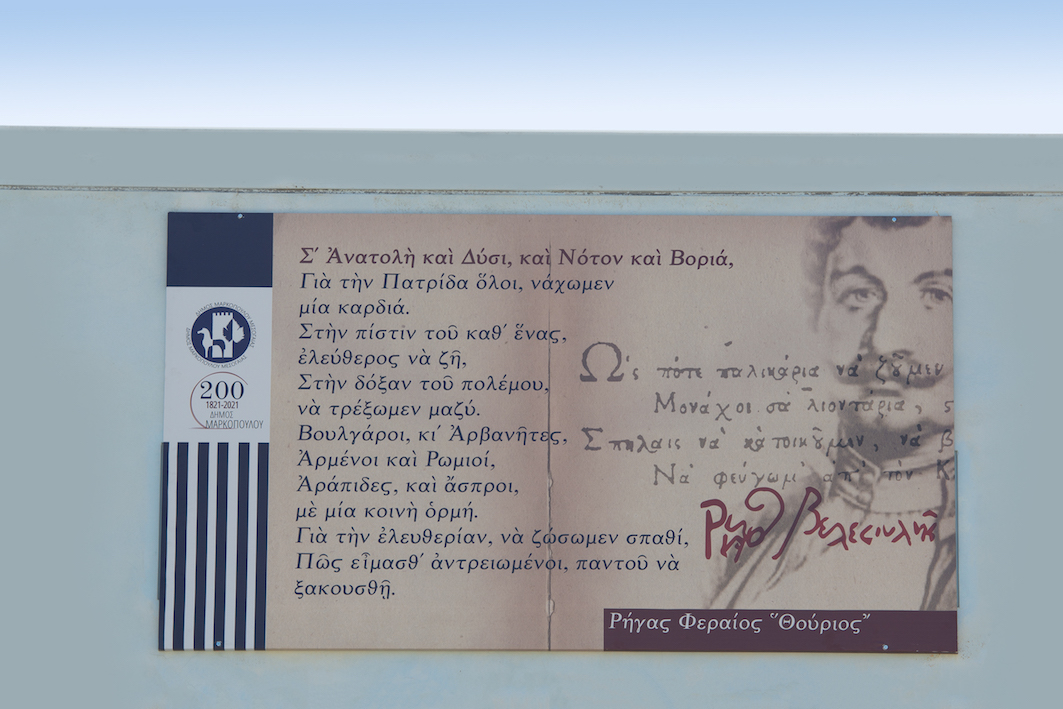 Σ' Ἀνατολὴ καὶ Δύσι, καὶ Νότον καὶ Βοριά,
Γιὰ τὴν Πατρίδα ὅλοι, νάχωμεν
μία καρδιά.
Στὴν πίστιν τοῦ καθ' ἕνας,
ἐλεύθερος νὰ ζῆ,
Στὴν δόξαν τοῦ πολέμου,
νὰ τρέξωμεν μαζύ.
Βουλγάροι, κι' Ἀρβανῆτες,
Ἀρμένοι καὶ Ρωμιοί,
Ἀράπιδες, καὶ ἄσπροι,
μὲ μία κοινὴ ὁρμή.
Γιὰ τὴν ἐλευθερίαν, νὰ ζώσωμεν σπαθί,
Πῶς εἶμασθ' ἀντρειωμένοι, παντοῦ νὰ
ξακουσθῇ.
ΔΗΜΟΣ ΜΑΡΚΟΠΟΥΛΟΥ ΜΕΣΟΓΑΙΑΣ
200
1821-2021
ΔΗΜΟΣ
ΜΑΡΚΟΠΟΥΛΟΥ
Ὡς πότε παλικάρια νὰ ζοῦμεν
Μονάχοι σὰ λιοντάρια, σ
Σπηλαις νὰ κατοικοῦμεν, νὰ β
Νὰ φεύγωμ' ἀπ' τὸν Κ
Ρήγας Βελεςτινλής
Ρήγας Φεραίος "Θούριος"